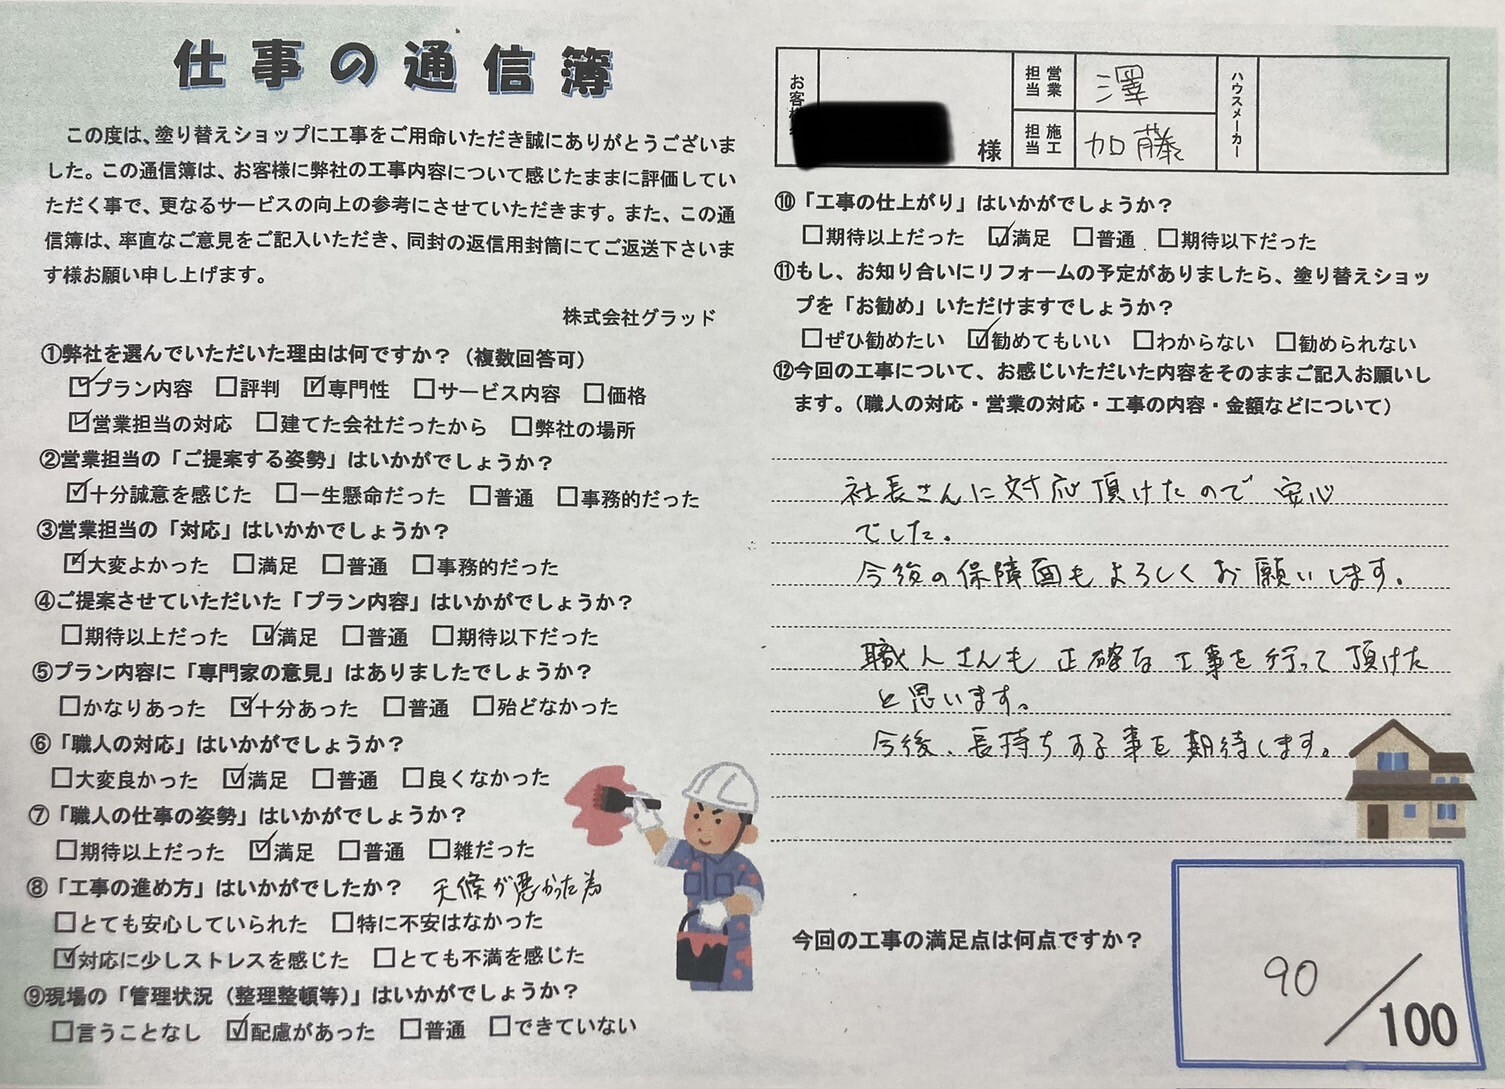 仕事の通信簿
この度は、塗り替えショップに工事をご用命いただき誠にありがとうございま
した。この通信簿は、お客様に弊社の工事内容について感じたままに評価してい
ただく事で、更なるサービスの向上の参考にさせていただきます。また、この通
信簿は、率直なご意見をご記入いただき、同封の返信用封筒にてご返送下さいま
す様お願い申し上げます。
株式会社グラッド
①弊社を選んでいただいた理由は何ですか？（複数回答可）
☑プラン内容 □評判 ☑専門性 □サービス内容 □価格
☑営業担当の対応 □建てた会社だったから □弊社の場所
②営業担当の「ご提案する姿勢」はいかがでしょうか？
☑十分誠意を感じた □一生懸命だった □普通 □事務的だった
③営業担当の「対応」はいかかでしょうか？
☑大変よかった □満足 □普通 □事務的だった
④ご提案させていただいた「プラン内容」はいかがでしょうか？
□期待以上だった ☑満足 □普通 □期待以下だった
⑤プラン内容に「専門家の意見」はありましたでしょうか？
□かなりあった ☑十分あった □普通 □殆どなかった
⑥「職人の対応」はいかがでしょうか？
□大変良かった ☑満足 □普通 □良くなかった
⑦「職人の仕事の姿勢」はいかがでしょうか？
□期待以上だった ☑満足 □普通 □雑だった
⑧「工事の進め方」はいかがでしたか？ 天候が悪かった為
□とても安心していられた □特に不安はなかった
☑対応に少しストレスを感じた □とても不満を感じた
⑨現場の「管理状況（整理整頓等）」はいかがでしょうか？
□言うことなし ☑配慮があった □普通 □できていない
お客様 様
営業担当 澤
施工担当 加藤
ハウスメーカー
⑩「工事の仕上がり」はいかがでしょうか？
□期待以上だった ☑満足 □普通 □期待以下だった
⑪もし、お知り合いにリフォームの予定がありましたら、塗り替えショッ
プを「お勧め」いただけますでしょうか？
□ぜひ勧めたい ☑勧めてもいい □わからない □勧められない
⑫今回の工事について、お感じいただいた内容をそのままご記入お願いし
ます。（職人の対応・営業の対応・工事の内容・金額などについて）
社長さんに対応頂けたので安心
でした。
今後の保障面もよろしくお願いします。
職人さんも正確な工事を行って頂けた
と思います。
今後、長持ちする事を期待します。
今回の工事の満足点は何点ですか？
90/100